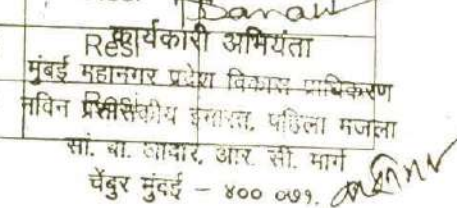 Resi
कार्यकारी अभियंता
मुंबई महानगर प्रदेश विकास प्राधिकरण
नविन प्रशासकीय इमारत, पहिला मजला
सां. बा. आवार, आर. सी. मार्ग
चेंबुर मुंबई – ४०० ०७१.